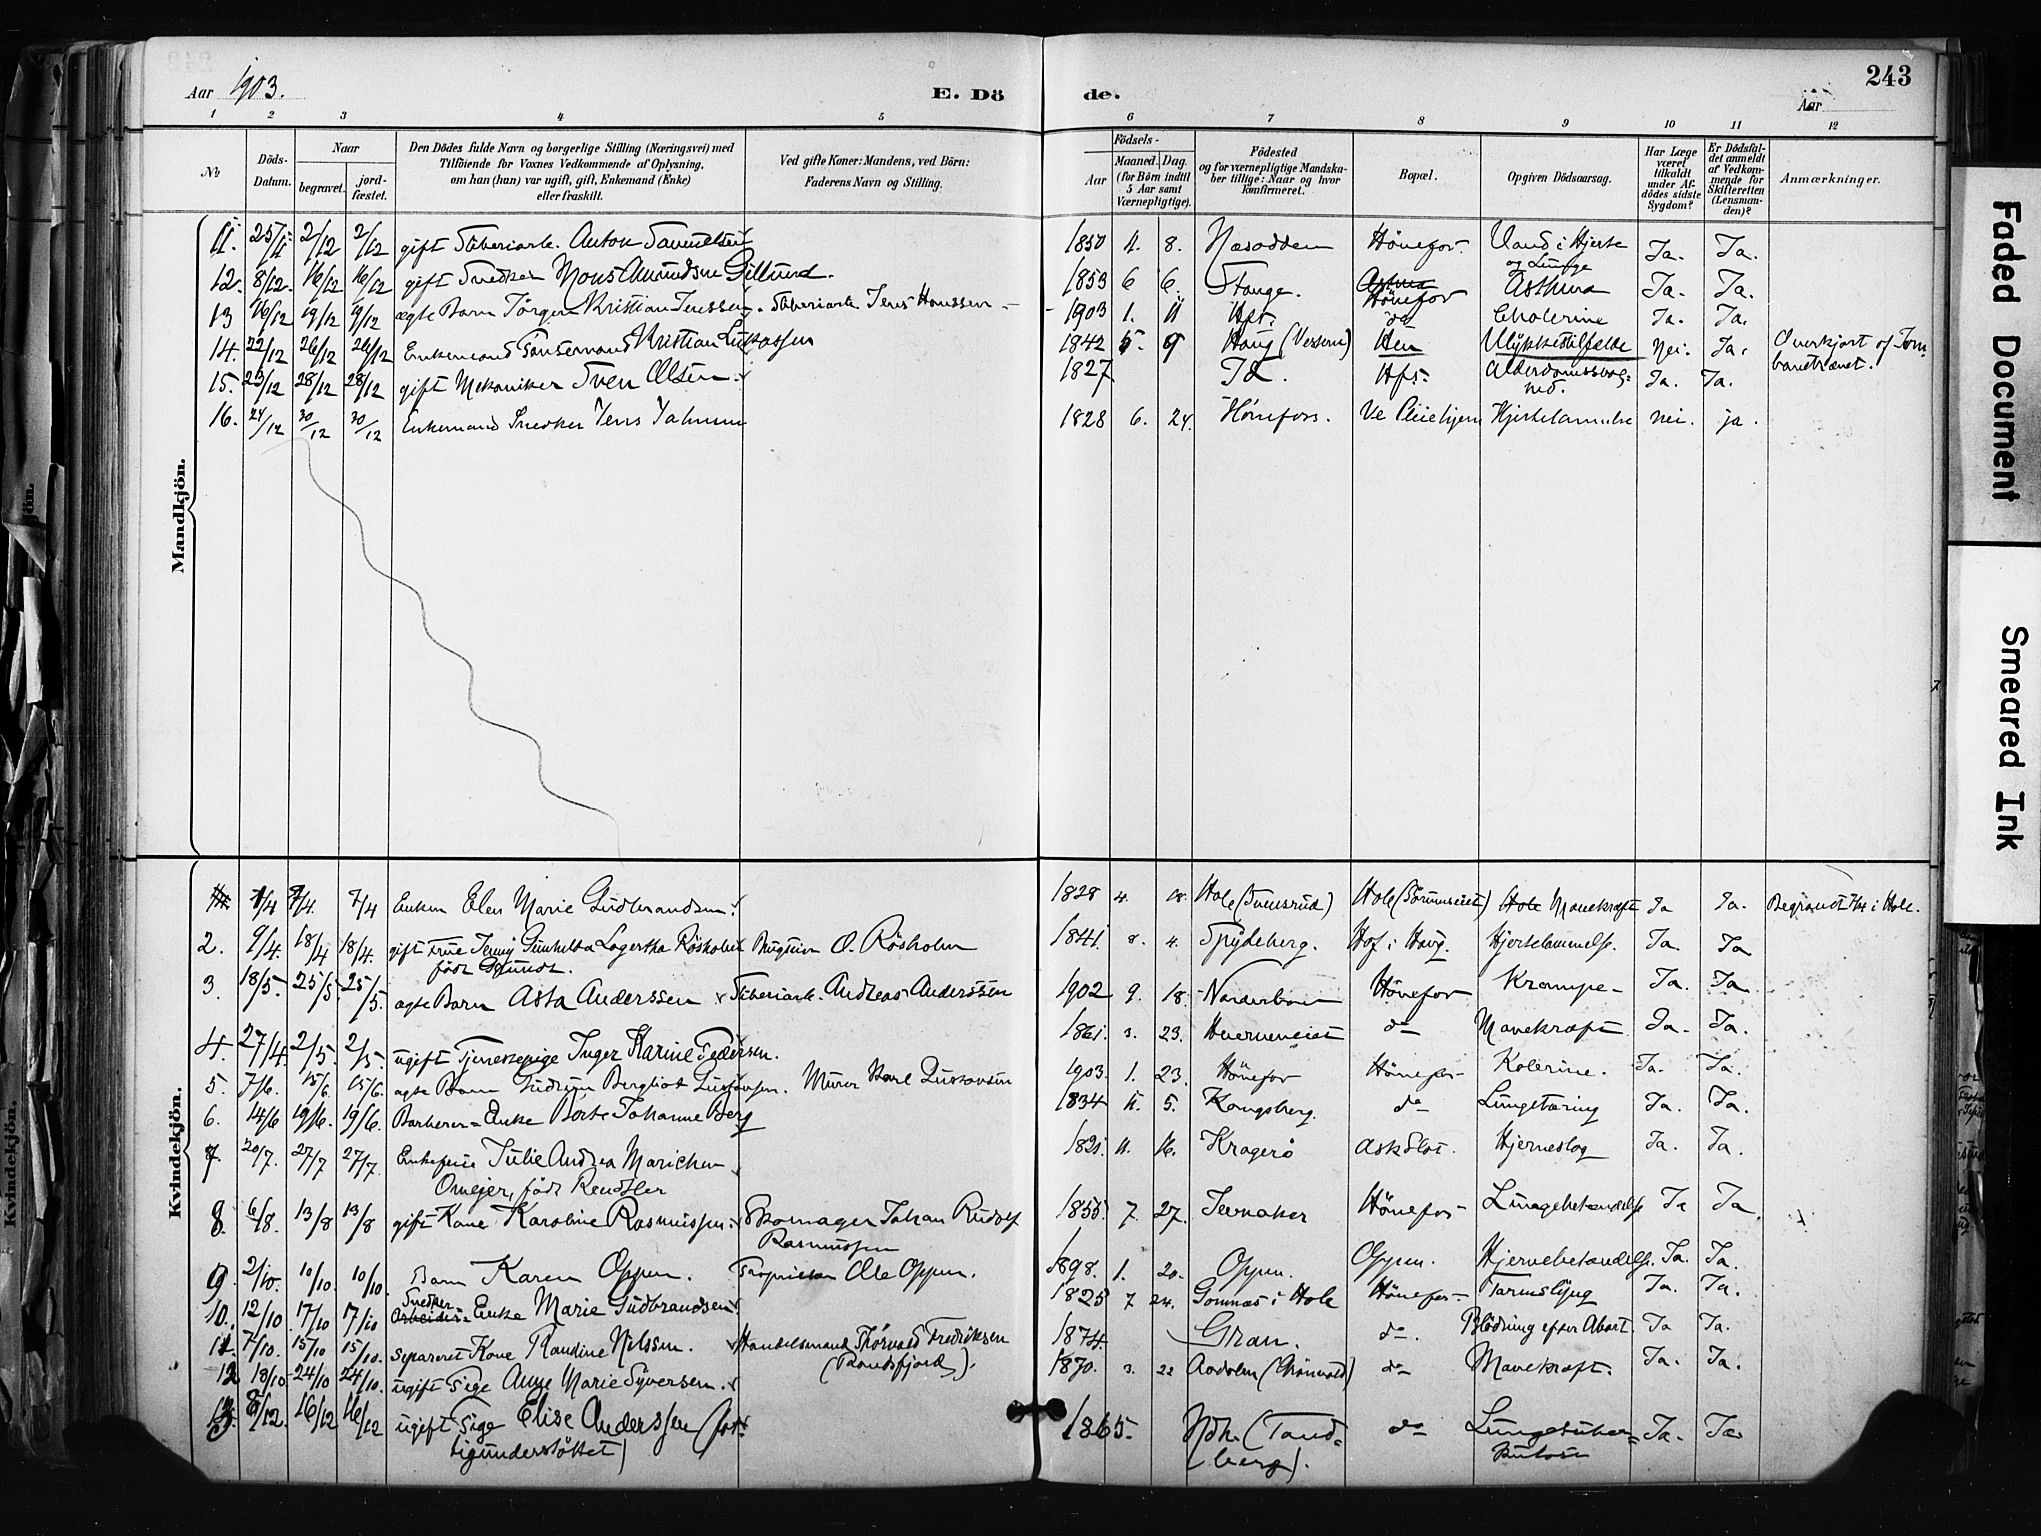 Aar 1903. E. Dö de. Aar 243
1 2 3 4 5 6 7 8 9 10 11 12
№
Döds-Datum.
Naar
begravet.
jord-fæstet.
Den Dödes fulde Navn og borgerlige Stilling (Næringsvei) med
Tilföiende for Voxnes Vedkommende af Oplysning,
om han (hun) var ugift, gift, Enkemand (Enke)
eller fraskilt.
Ved gifte Koner: Mandens, ved Börn:
Faderens Navn og Stilling.
Födsels-
Aar
Maaned. Dag.
(for Börn indtil
5 Aar samt
Værnepligtige).
Födested
og for værnepligtige Mandska-
ber tillige: Naar og hvor
konfirmeret.
Bopæl.
Opgiven Dödsaarsag.
Har Læge
været
tilkaldt
under Af-
dödes sidste
Sygdom?
Er Dödsfal-
det anmeldt
af Vedkom-
mende for
Skifteretten
(Lensman-
den)?
Anmærkninger.
Mandkjön.
11. 25/11 2/12 2/12 gift Fabriarb. Anton Samuelsen 1850 11. 8. Næsodden Hönefos. Vand i Hjerte og Lunge Ja. Ja.
12. 8/12. 16/12 16/12 gift Snedker Mons Amundsen Gillund. 1853 6 6. Stange. Hönefos Asthma Ja. Ja.
13 16/12 19/12 19/12 ægte Barn Jörgen Kristian Jenssen. Fabriarb. Jens Hanssen 1903 1. 11 Hfs. do Cholerine Ja. Ja.
14. 22/12 26/12 26/12 Enkemand Kristian Lukassen 1842 5. 9 Haug (Vesseren) Hen Ulykkestilfælde Nei. Ja. Overkjört af Jern-
banetrænet.
15. 23/12 28/12 28/12 gift Mekaniker Sven Olsen. 1827 Id. Hfs. Alderdomssvag-
hed. Ja. Ja.
16. 24/12 30/12 30/12 Enkemand Snedker Jens 1828 6. 24. Hönefoss. Ve Pleiehjem Hjertelammelse nei. ja.
Kvindekjön.
1/4 7/4. 7/4 Enken Elen Marie Gudbrandsen. 1828 4. 18. Hole Hole Mavekræft Ja Ja. Begravet 7/4 i Hole.
2. 9/4. 18/4 18/4. gift Frue Jenny Gunhilda Lagertha Rösholm O. Rösholm 1841. 8. 4. Spydeberg. Hof i Haug. Hjertelammelse. Ja. Ja
3. 18/5. 25/5 25/5. ægte Barn Asta Anderssen Fabriarb. Andreas Anderssen 1902 9. 18. Hönefos Krampe Ja. Ja.
4. 27/4. 2/5. 2/5. ugift Tjenestepige Inger Karine Pedersen. 1861. 3. 23. do Mavekræft Ja. Ja.
5. 7/6. 15/6. 15/6. ægte Barn Gudrun Bergliot Gustavsen. Murer Karl Gustavsen 1903. 1. 23. Hönefos Hönefos Kolerine. Ja. Ja.
6. 14/6 19/6. 19/6. Barberer-Enke Börte Johanne Berg 1834 11. 5. Kongsberg. do Lungetæring Ja. Ja.
7. 20/7. 27/7 27/7. Enkefrue Julie Andrea Marichen 1821. 11. 16. Kragerö Ask Slot. Hjerneslag Ja. Ja.
Omejer, född Rendtler
8. 6/8. 13/8 13/8 gift Kone Karoline Rasmussen. Skomager Johan Rudolf
Rasmussen 1855. 7. 27. Jevnaker Hönefos Lungebetændelse Ja Ja
9. 2/10. 10/10. 10/10. Barn Karen Oppen. Proprietær Ole Oppen. 1898. 1. 20. Oppen. Oppen. Hjernebetændelse. Ja. Ja.
10. 12/10 17/10 17/10 Snedker Enke Marie Gudbrandsen 1825 7 24. Gomnæs i Hole Hönefos Tarmslyng Ja. Ja.
11. 7/10. 15/10 15/10. Separeret Kone Randine Nilssen. Handelsmand Thorvald Fredriksen
(Randsfjord). 1874. Gran. do Blödning efter Abort. Ja Ja.
12 18/10 24/10 24/10. ugift Pige Anne Marie Syversen. 1870. 3. 22 Aadalen do Mavekræft. Ja. Ja.
13. 8/12. 16/12 16/12 ugift Pige Elise Anderssen (fat-
tigunderstöttet) 1865. Ndh. (Tand-
berg). do Lungetuber-
kulose Ja. Ja.
Faded Document
Smeared Ink